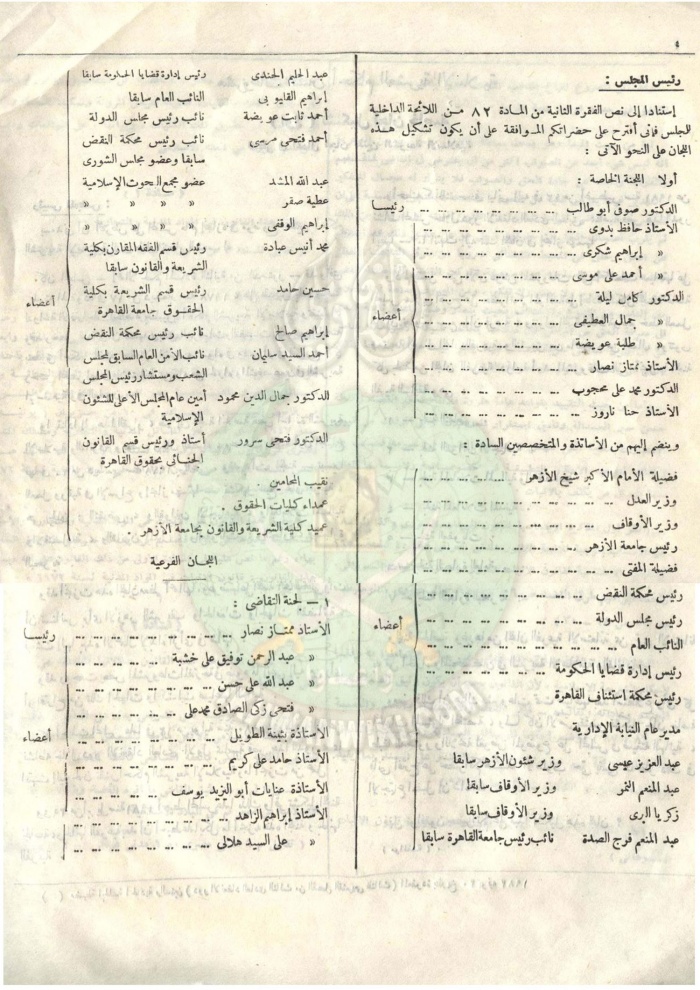 ٤
رئيس المجلس :
إستنادا إلى نص الفقرة الثانية من المادة ٨٢ من اللائحة الداخلية
للمجلس فإنى أقترح على حضراتكم الموافقة على أن يكون تشكيل هذه
اللجان على النحو الآتى :
أولا اللجنة الخاصة :
الدكتور صوفى أبو طالب ... ... ... ... ... ... رئيسا
الأستاذ حافظ بدوى ... ... ... ... ... ...
« إبراهيم شكرى ... ... ... ... ... ...
« أحمد على موسى ... ... ... ... ... ...
الدكتور كامل ليلة ... ... ... ... ... ...
« جمال العطيفى ... ... ... ... ... ... أعضاء
« طلبة عويضة ... ... ... ... ... ...
الأستاذ ممتاز نصار ... ... ... ... ... ...
الدكتور محمد على محجوب ... ... ... ... ... ...
الأستاذ حنا ناروز ... ... ... ... ... ...
وينضم إليهم من الأساتذة والمتخصصين السادة :
فضيلة الأمام الأكبر شيخ الأزهر ... ... ... ...
وزير العدل ... ... ... ... ... ... ...
وزير الأوقاف ... ... ... ... ... ... ...
رئيس جامعة الأزهر ... ... ... ... ... ...
فضيلة المفتى ... ... ... ... ... ... ...
رئيس محكمة النقض ... ... ... ... ... ...
رئيس مجلس الدولة ... ... ... ... ... ... أعضاء
النائب العام ... ... ... ... ... ... ...
رئيس إدارة قضايا الحكومة ... ... ... ... ...
رئيس محكمة استئناف القاهرة
مدير عام النيابة الإدارية
عبد العزيز عيسى وزير شئون الأزهر سابقا
عبد المنعم النمر وزير الأوقاف سابقا
زكريا البرى وزير الأوقاف سابقا
عبد المنعم فرج الصدة نائب رئيس جامعة القاهرة سابقا
عبد الحليم الجندى رئيس إدارة قضايا الحكومة سابقا
إبراهيم القليوبى النائب العام سابقا
أحمد ثابت عويضة نائب رئيس مجلس الدولة
أحمد فتحى مرسى نائب رئيس محكمة النقض
سابقا وعضو مجلس الشورى
عبد الله المشد عضو مجمع البحوث الإسلامية
عطية صقر « « « «
إبراهيم الوقفى « « « «
محمد أنيس عبادة رئيس قسم الفقه المقارن بكلية
الشريعة والقانون سابقا
حسين حامد رئيس قسم الشريعة بكلية
الحقوق جامعة القاهرة أعضاء
إبراهيم صالح نائب رئيس محكمة النقض
أحمد السيد سليمان نائب الأمن العام السابق لمجلس
الشعب ومستشار رئيس المجلس
الدكتور جمال الدين محمود أمين عام المجلس الأعلى للشئون
الإسلامية
الدكتور فتحى سرور أستاذ ورئيس قسم القانون
الجنائى بحقوق القاهرة
نقيب المحامين .
عمداء كليات الحقوق .
عميد كلية الشريعة والقانون بجامعة الأزهر .
اللجان الفرعية
١ – لجنة التقاضى :
الأستاذ ممتاز نصار ... ... ... ... ... ... رئيسا
« عبد الرحمن توفيق على خشبة ... ... ...
« عبد الله على حسن ... ... ... ... ...
« فتحى زكى الصادق محمد على ... ... ...
الأستاذة بثينة الطويل ... ... ... ... ... أعضاء
الأستاذ حامد على كريم ... ... ... ... ...
الأستاذة عنايات أبو اليزيد يوسف ... ... ...
الأستاذ إبراهيم الزاهد ... ... ... ... ...
« على السيد هلالى ... ... ... ... ...